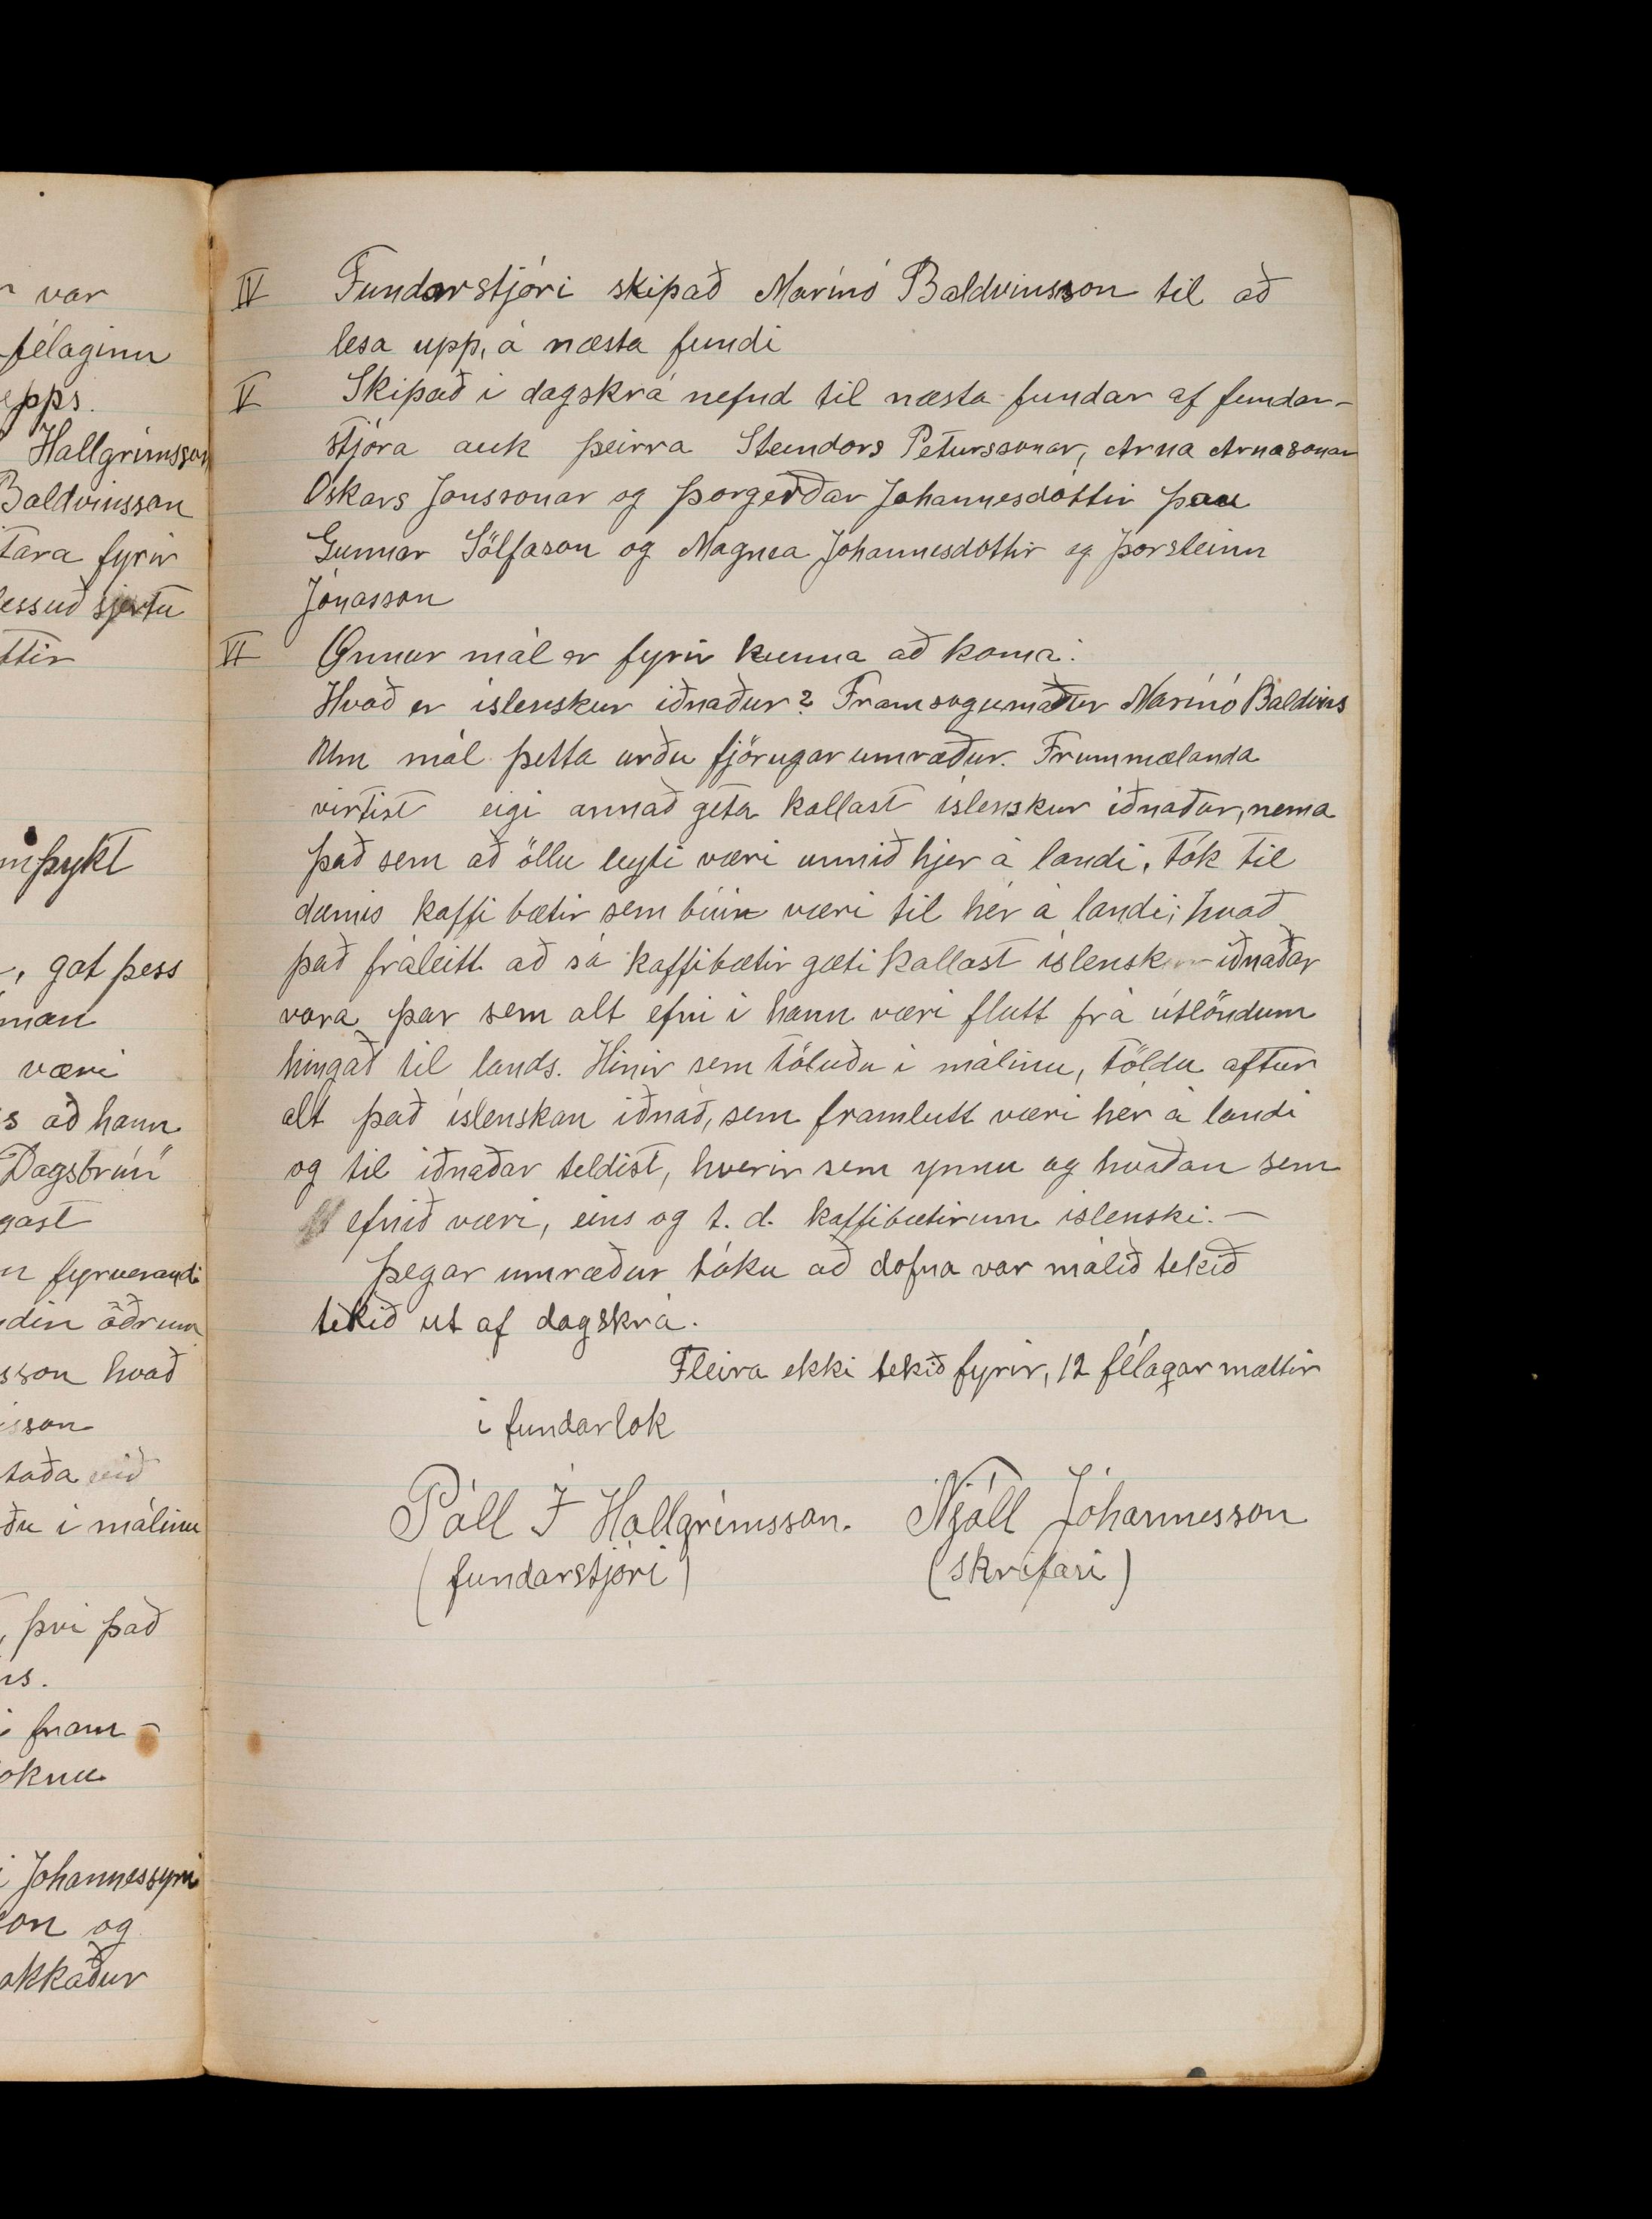 r var
félaginu
epps.
Hallgrímsson
Baldvinsson
tara fyrir
lessuð sjertu
ttir
mþykt
, gat þess
man
væri
s að hann
"Dagsbrún"
gast
n fyrverandi
din öðrum
sson hvað
isson
taða við
ðu í málinu
, því það
ns.
i fram-
oknu
i Jóhannessyni
son og
akkaður
IV Fundarstjóri skipað Marínó Baldvinsson til að
lesa upp, á næsta fundi
V Skipað i dagskrá nefnd til næsta fundar af fundar-
stjóra auk þeirra Steindors Peturssonar, Arna Arnasonar
Óskars Jonssonar og Þorgerðar Johannesdóttir þau
Gunnar Sölfason og Magnea Johannesdóttir og Þorsteinn
Jónasson
VI Önnur mál er fyrir kunna að koma:
Hvað er íslenskur iðnaður? Framsogumaður Marínó Baldvins
Um mál þetta urðu fjörugar umræður. Frummælanda
virtist eigi annað geta kallast íslenskur iðnaður, nema
það sem að öllu leyti væri unnið hjer á landi, tók til
dæmis kaffi bætir sem búin væri til hér á landi; hvað
það fráleitt að sá kaffibætir gæti kallast íslenskur iðnaðar
vara þar sem alt efni í hann væri flutt frá útlöndum
hingað til lands. Hinir sem töluðu i málinu, töldu aftur
alt það íslenskan iðnað, sem framlutt væri hér á landi
og til iðnaðar teldist, hverir sem ynnu og hvaðan sem
efnið væri, eins og t. d. kaffibætirum íslenski. —
Þegar umræður tóku að dofna var málið tekið
tekið ut af dagskrá.
Fleira ekki tekið fyrir, 12 félagar mættir
i fundarlok
Páll Í Hallgrímsson. Njáll Jóhannesson
(fundarstjóri) (skrifari)